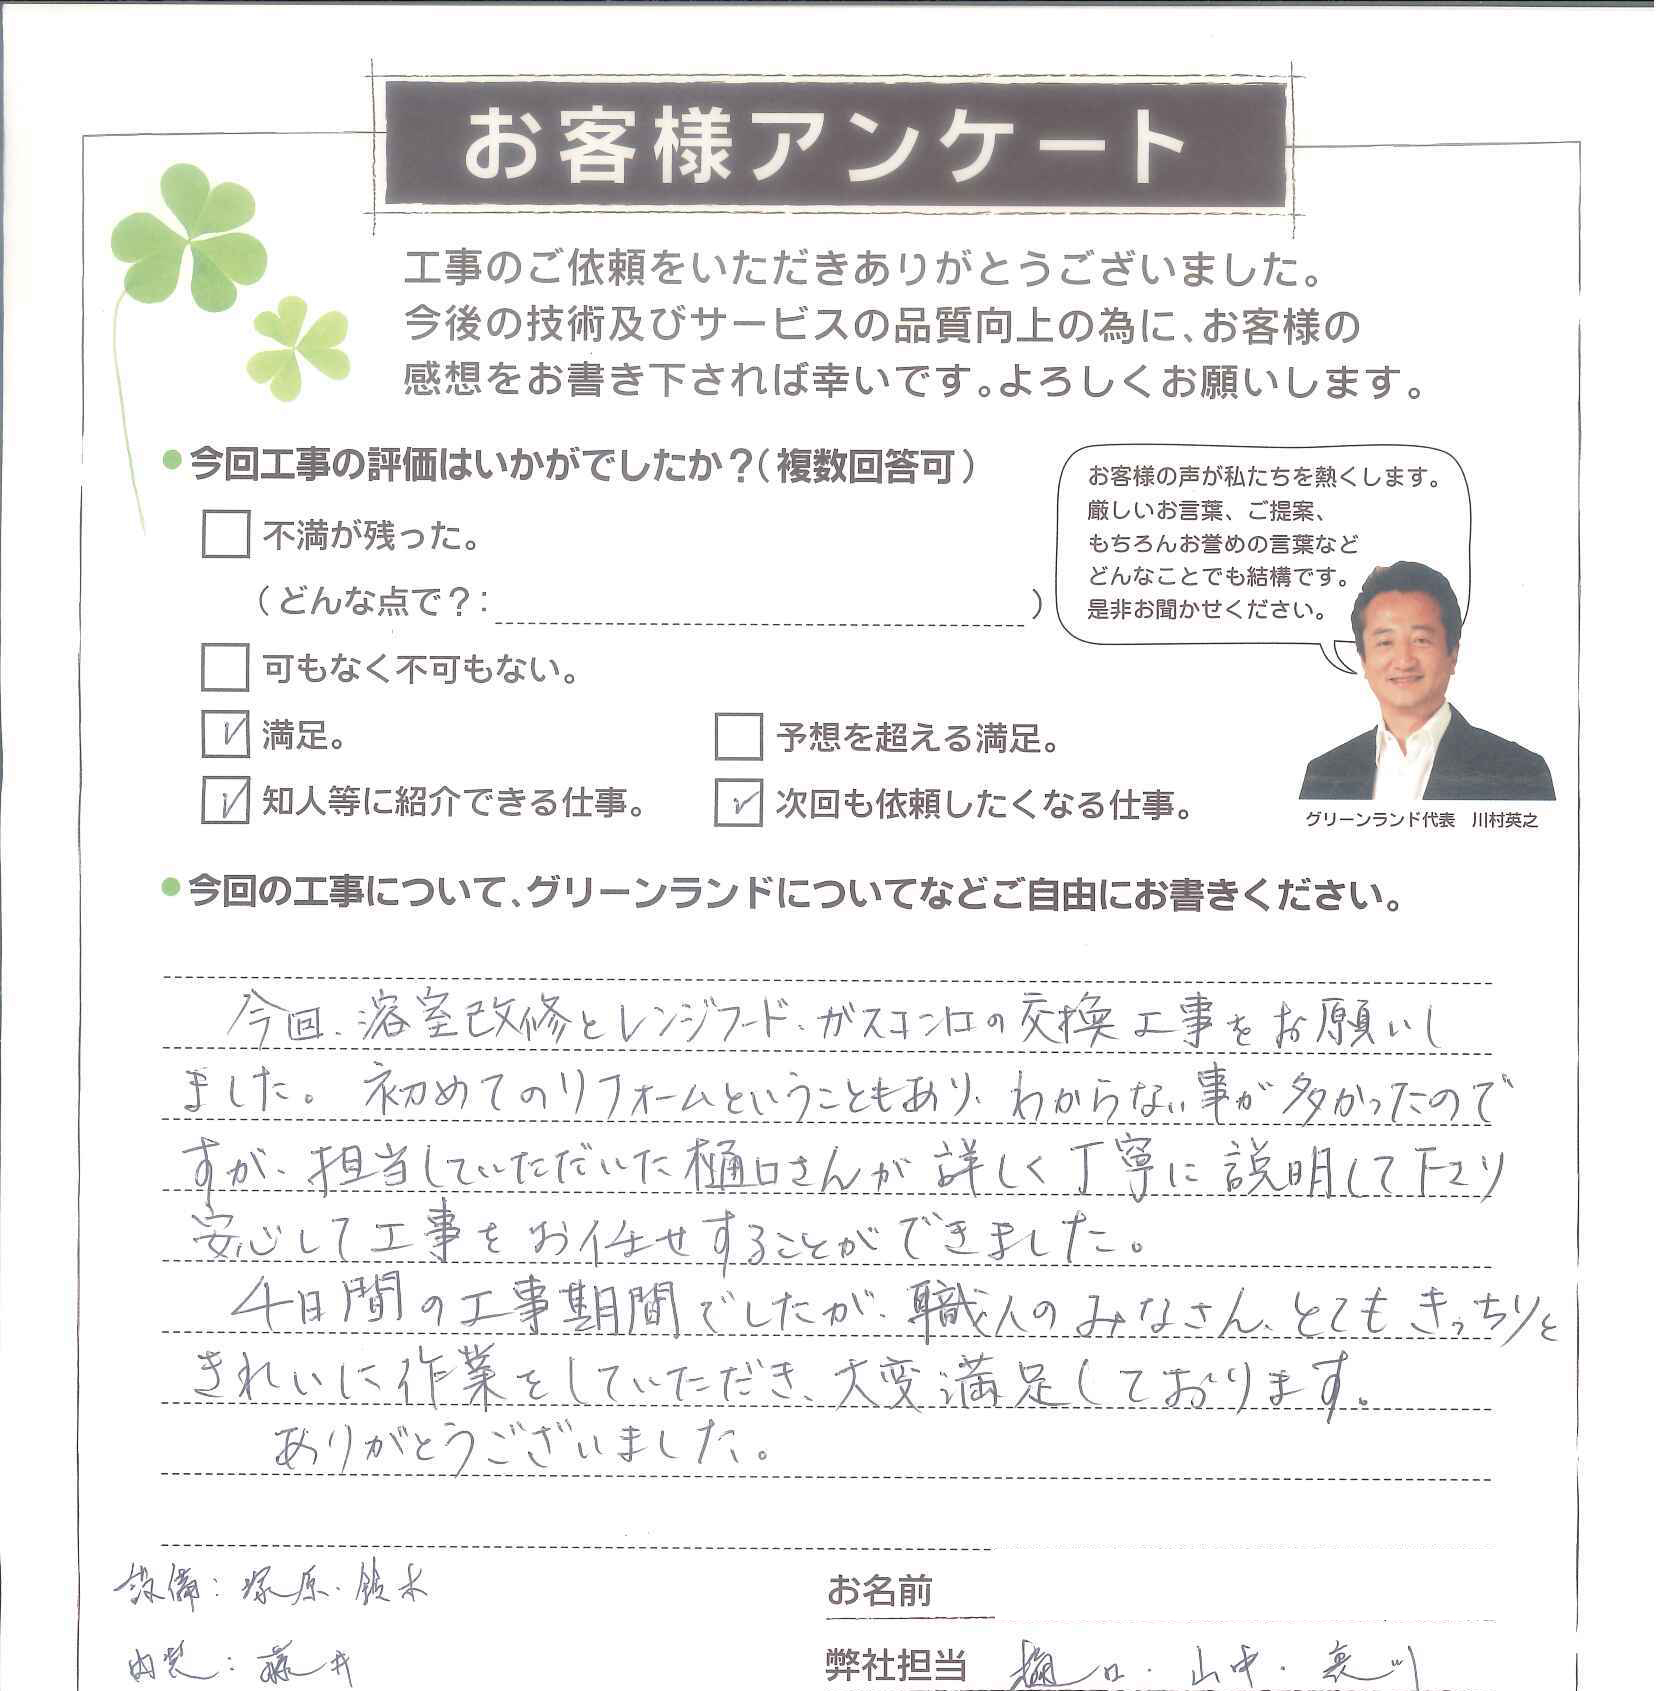 お客様アンケート
工事のご依頼をいただきありがとうございました。
今後の技術及びサービスの品質向上の為に、お客様の
感想をお書き下されば幸いです。よろしくお願いします。
今回工事の評価はいかがでしたか？（複数回答可）
不満が残った。
（どんな点で？：　）
可もなく不可もない。
満足。
予想を超える満足。
知人等に紹介できる仕事。
次回も依頼したくなる仕事。
お客様の声が私たちを熱くします。
厳しいお言葉、ご提案、
もちろんお誉めの言葉など
どんなことでも結構です。
是非お聞かせください。
グリーンランド代表　川村英之
今回の工事について、グリーンランドについてなどご自由にお書きください。
今回、浴室改修とレンジフード、ガスコンロの交換工事をお願いし
ました。初めてのリフォームということもあり、わからない事が多かったので
すが、担当していただいた樋口さんが詳しく丁寧に説明して下さり
安心して工事をお任せすることができました。
4日間の工事期間でしたが、職人のみなさん、とてもきっちりと
きれいに作業をしていただき、大変満足しております。
ありがとうございました。
設備：塚原・鈴木
内装：藤井
お名前
弊社担当　樋口・山中・